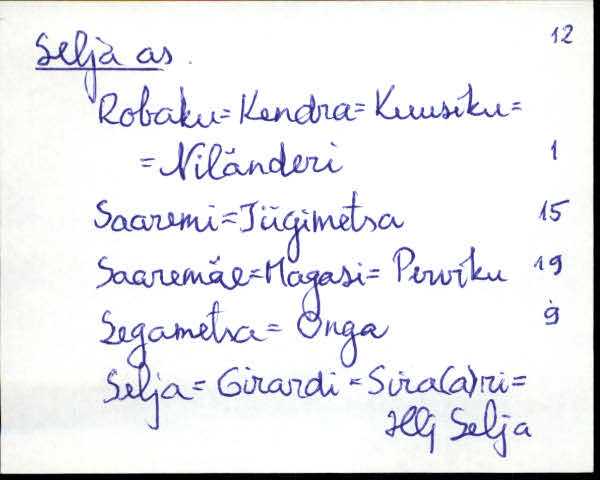 Selja as. 12
Robaku=Kendra=Kuusiku=
=Niländeri 1
Saaremi=Jügimetsa 15
Saaremäe=Magasi=Perviku 19
Segametsa=Onga 9
Selja=Girardi=Sira(a)ri=
Selja